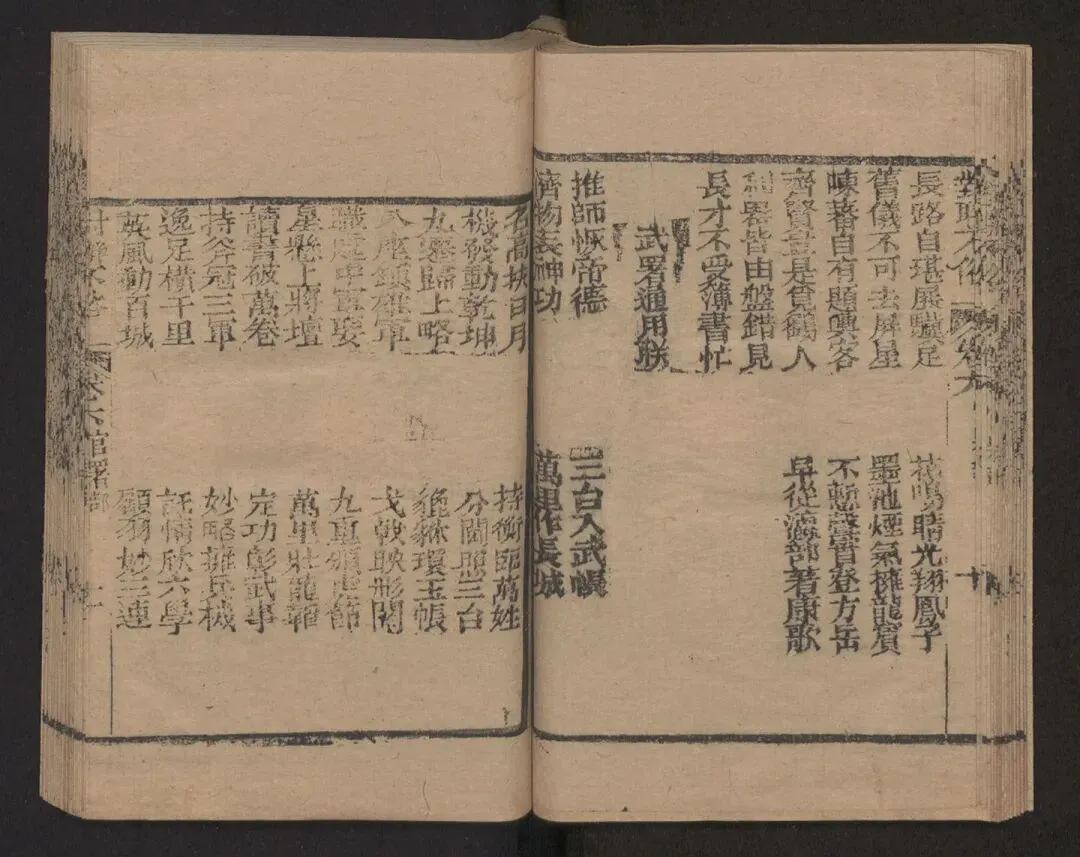 卷六
長路自堪展驥足
花鳴晴光翔鳳子
舊儀不可去屏星
墨池煙氣擁龍賓
陳蕃自有題輿客
不慙登方岳
齊賢豈是食鷄人
早從海部著康歌
利器皆由盤錯見
長才不受簿書忙
武署通用聯
推師恢帝德
三台入武帳
濟物表神功
萬里作長城
名高揳日月
持衡師萬姓
機發動乾坤
分閫照三台
九塞歸上略
貔貅環玉帳
八座鎮雄軍
戈戟映彤閣
九重頒虎節
星懸上將壇
萬里壯龍韜
讀書破萬卷
定功彰武事
持斧冠三軍
妙略擁兵機
逸足橫千里
託情欣六學
英風動百城
顧羽妙三連
卷六官署部
十一